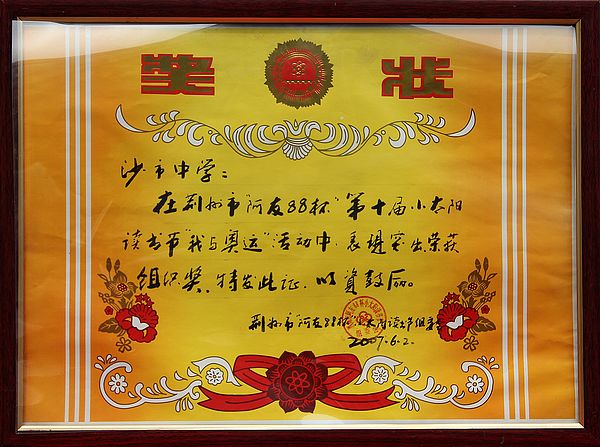 奖状
沙市中学：
在荆州市“阿友88杯”第十届小太阳
读书节“我与奥运”活动中，表现突出荣获
组织奖，特发此证，以资鼓励。
荆州市“阿友88杯”小太阳读书节组委会
2007.6.2.